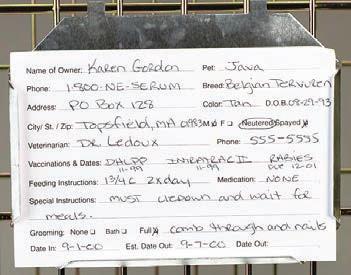 Name of Owner: Karen Gordon Pet: Java
Phone: 1-800-NE-SERUM Breed: Belgian Tervuren
Address: PO Box 128 Color: Tan D.O.B. 08-29-93
City/ St. / Zip: Topsfield, MA 01983 M F Neutered Spayed
Veterinarian: DR. Ledoux Phone: 555-5595
Vaccinations & Dates: DHLPP 11-99 INTRATRAC II 11-99 RABIES DUE 12-01
Feeding Instructions: 1 3/4 C 2x day Medication: NONE
Special Instructions: must liedown and wait for
meals.
Grooming: None Bath Full comb through and nails
Date In: 9-1-00 Est. Date Out: 9-7-00 Date Out: